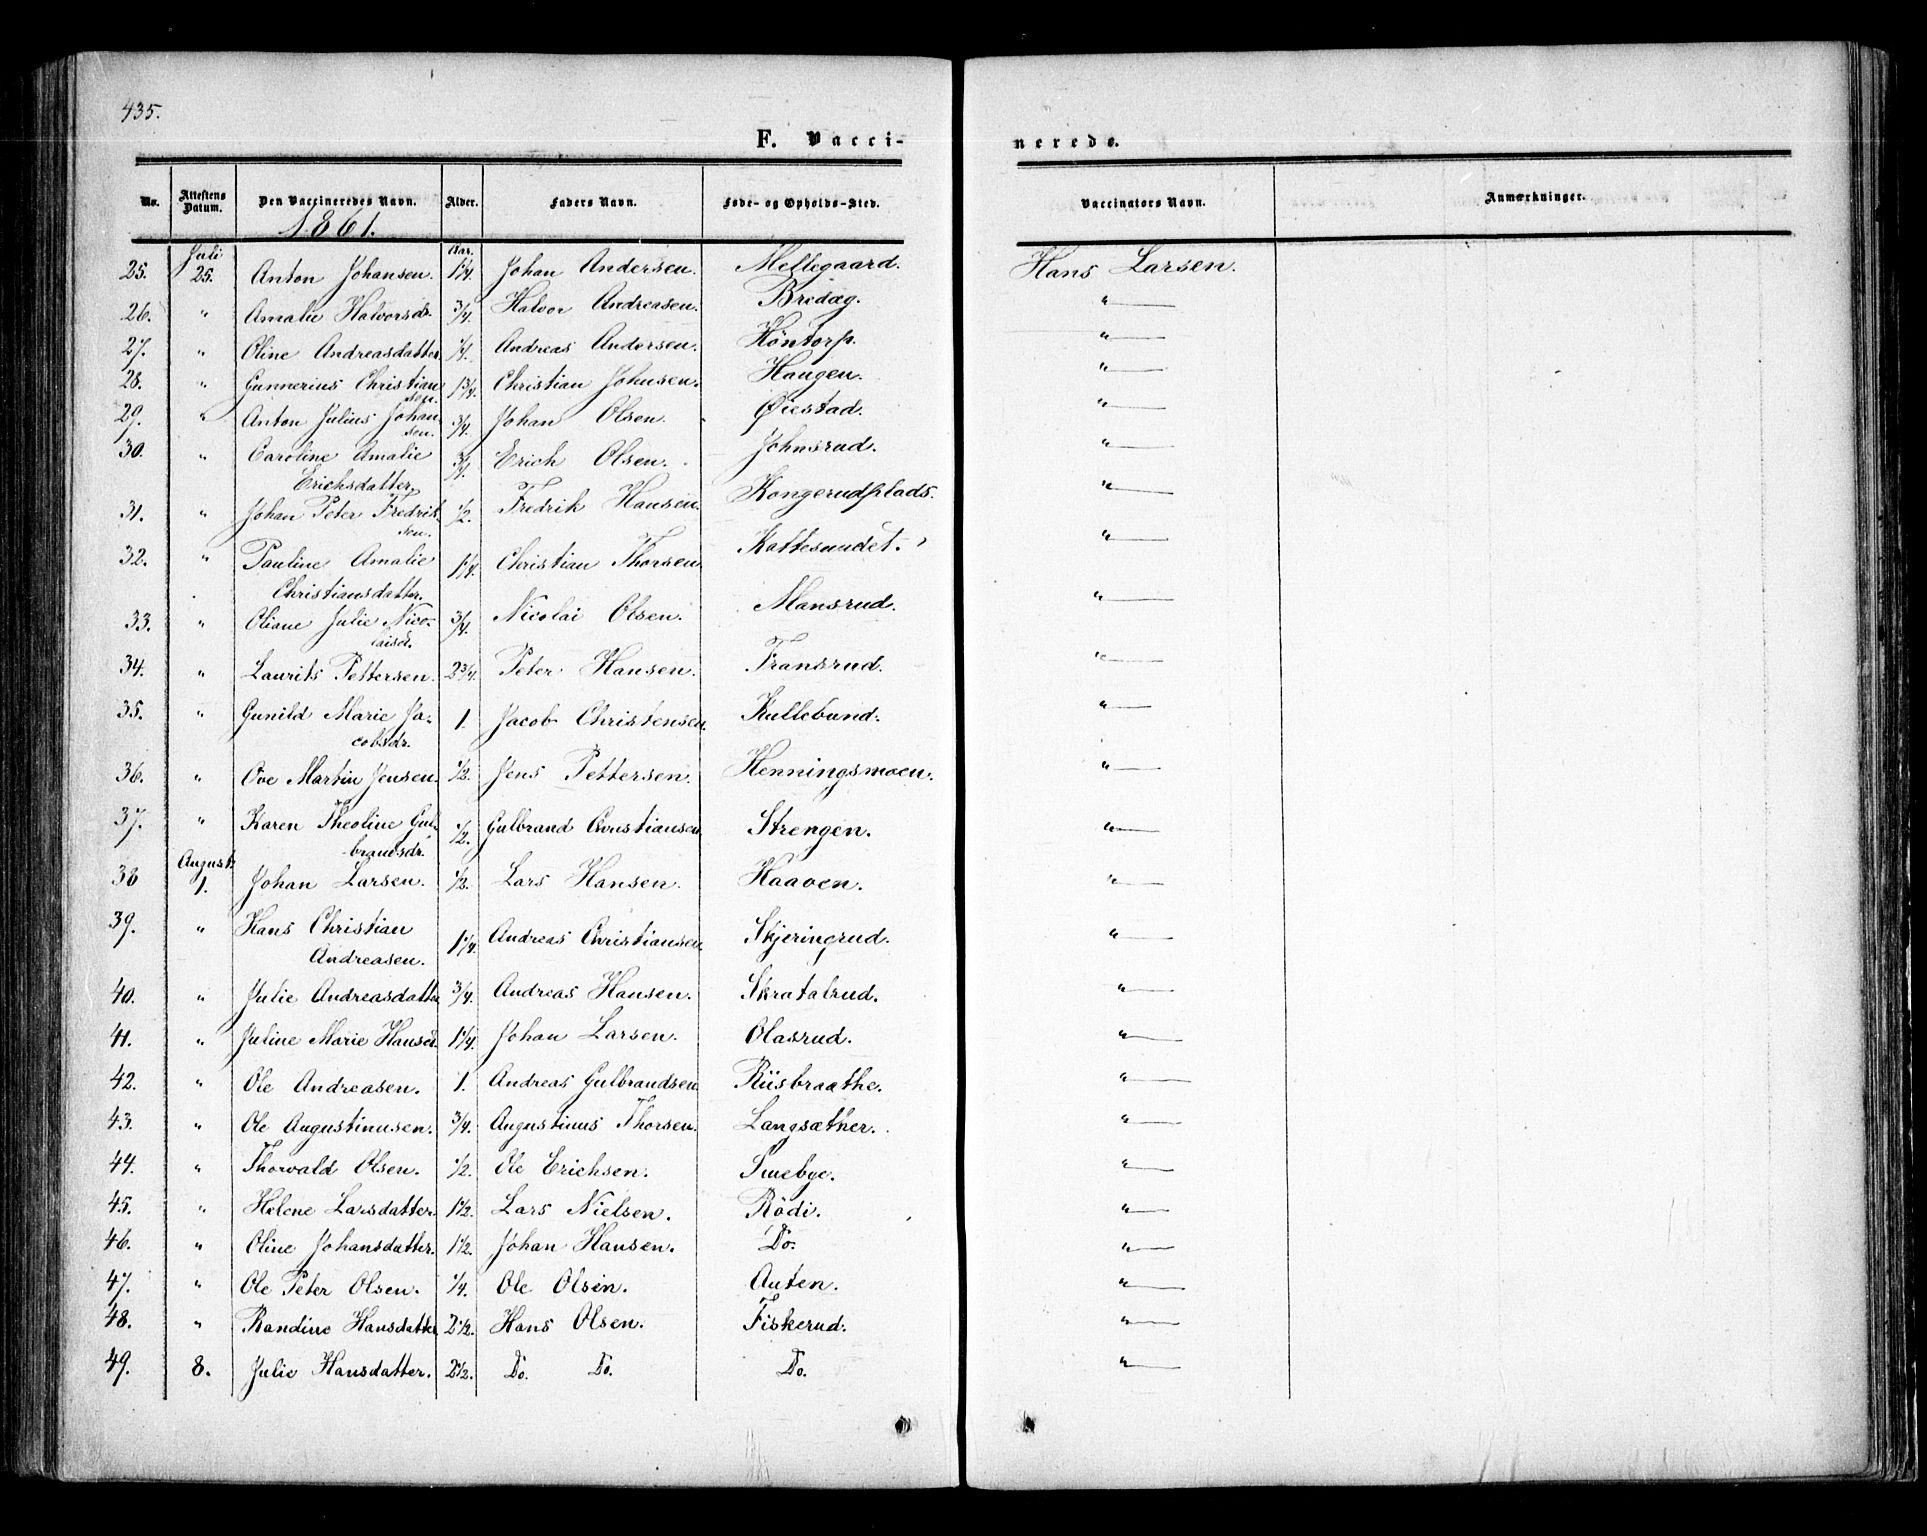 435.
F. Vacci-
nerede.
No. Attestens Datum. Den Vaccineredes Navn. Alder. Faders Navn. Føde- og Opholds-Sted. Vaccinators Navn. Anmærkninger.
1861.
Juli Aar.
25. 25. Anton Johansen. 1¼. Johan Andersen. Mellegaard. Hans Larsen.
26. " Amalie Halvorsdr. ¾. Halvor Andreasen. Bredæg. "
27. " Oline Andreasdatter. ¼. Andreas Andersen. Höntorp. "
28. " Gunnerius Christian 1¾. Christian Johnsen. Haugen. "
sen.
29. " Anton Julius Johan ¾. Johan Olsen. Øiestad. "
sen.
30. " Caroline Amalie ¾. Erich Olsen. Johnsrud. "
Erichsdatter.
31. " Johan Peter Fredrik ½. Fredrik Hansen. Kongerudplads. "
sen.
32. " Pauline Amalie 1¼. Christian Thorsen Kattesundet. "
Christiansdatter.
33. " Oliane Julie Nico- ¾. Nicolai Olsen. Mansrud. "
laisd.
34. " Laurits Pettersen. 2¾. Peter Hansen. Transrud. "
35. " Gunild Marie Ja- 1. Jacob Christensen. Kullebund. "
cobsdr.
36. " Ove Martin Jensen. ½. Jens Pettersen. Henningsmoen. "
37. " Karen Theoline Gul- ½. Gulbrand Christiansen Strengen. "
brandsdr.
August
38 1. Johan Larsen. ½. Lars Hansen. Haaven. "
39. " Hans Christian 1¼. Andreas Christiansen. Skjeringrud. "
Andreasen.
40. " Julie Andreasdatter ¾. Andreas Hansen. Skratalrud. "
41. " Juline Marie Hansd. 1¼. Johan Larsen. Olasrud. "
42. " Ole Andreasen. 1. Andreas Gulbrandsen Riisbraathe. "
43. " Ole Augustinusen. ¾. Augustinus Thorsen. Langsæther. "
44. " Thorvald Olsen. ½. Ole Erichsen. Smebye. "
45. " Helene Larsdatter. 1½. Lars Nielsen. Rödi. "
46. " Oline Johansdatter. 1½. Johan Hansen. Do. "
47. " Ole Peter Olsen. ¼. Ole Olsen. Auten. "
48. " Randine Hansdatter 2½. Hans Olsen. Fiskerud. "
49. 8. Julie Hansdatter. 2½. Do. Do. Do. "